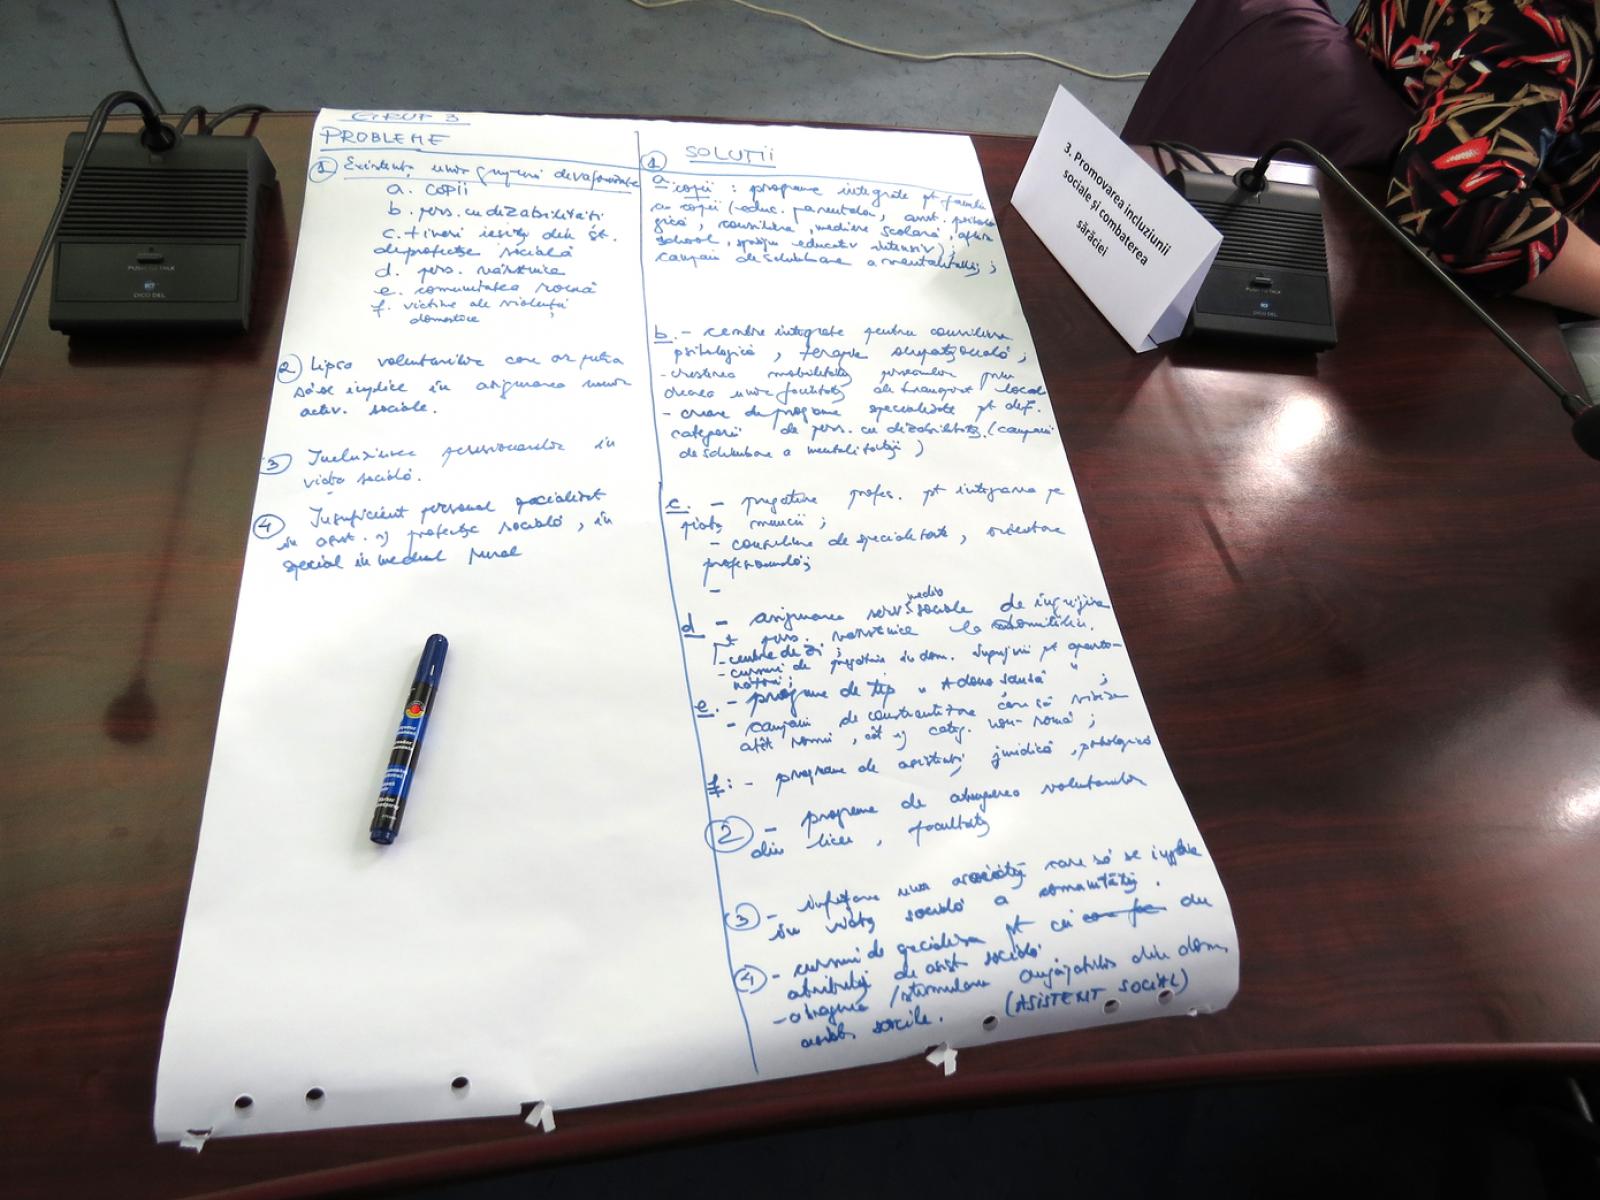 GRUP 3
PROBLEME
① Existența unor grupuri defavorizate
a. copii
b. pers. cu dizabilități
c. tineri ieșiți din st.
de protecție socială
d. pers. vârstnice
e. comunitatea romă
f. victime ale violenței
domestice
② Lipsa voluntarilor care ar putea
să se implice în asigurarea unor
activ. sociale.
③ Incluziunea pensionarilor în
viața socială.
④ Insuficient personal specializat
în asist. și protecție socială, în
special în mediul rural
SOLUȚII
①
a. copii: programe integrate pt familii
cu copii (educ. parentală, asist. psiholo
gică, consiliere, mediere școlară, after
school, sprijin educativ intensiv);
campanii de schimbare a mentalității;
b. - centre integrate pentru consiliere
psihologică, terapie ocupațională;
- creșterea mobilității persoanelor prin
crearea unor facilități ale transport local
- creare de programe specializate pt dif.
categorii de pers. cu dizabilități (campanii
de schimbare a mentalității)
c. - pregătire profes. pt integrarea pe
piața muncii;
- consiliere de specialitate, orientare
profesională;
-
d - asigurarea serv. medico sociale de îngrijire
pt pers. vârstnice la domiciliu.
- centre de zi;
- cursuri de pregătire în dom. îngrijirii pt aparți-
nători;
e. - programe de tip "A doua șansă";
- campanii de conștientizare care să vizeze
atât romii, cât și categ. non-romă;
f: - programe de asistență juridică, psihologică
② - programe de atragerea voluntarilor
din licee, facultăți
③ - înființare unor asociații care să se implice
în viața socială a comunității.
④ - cursuri de specializare pt cei din
atribuții de asist. socială
- atragerea/stimularea angajaților din dom.
asist. sociale. (ASISTENT SOCIAL)
3. Promovarea incluziunii
sociale și combaterea
sărăciei
PUSH TO TALK
DICO DEL
PUSH TO TALK
DICO DEL